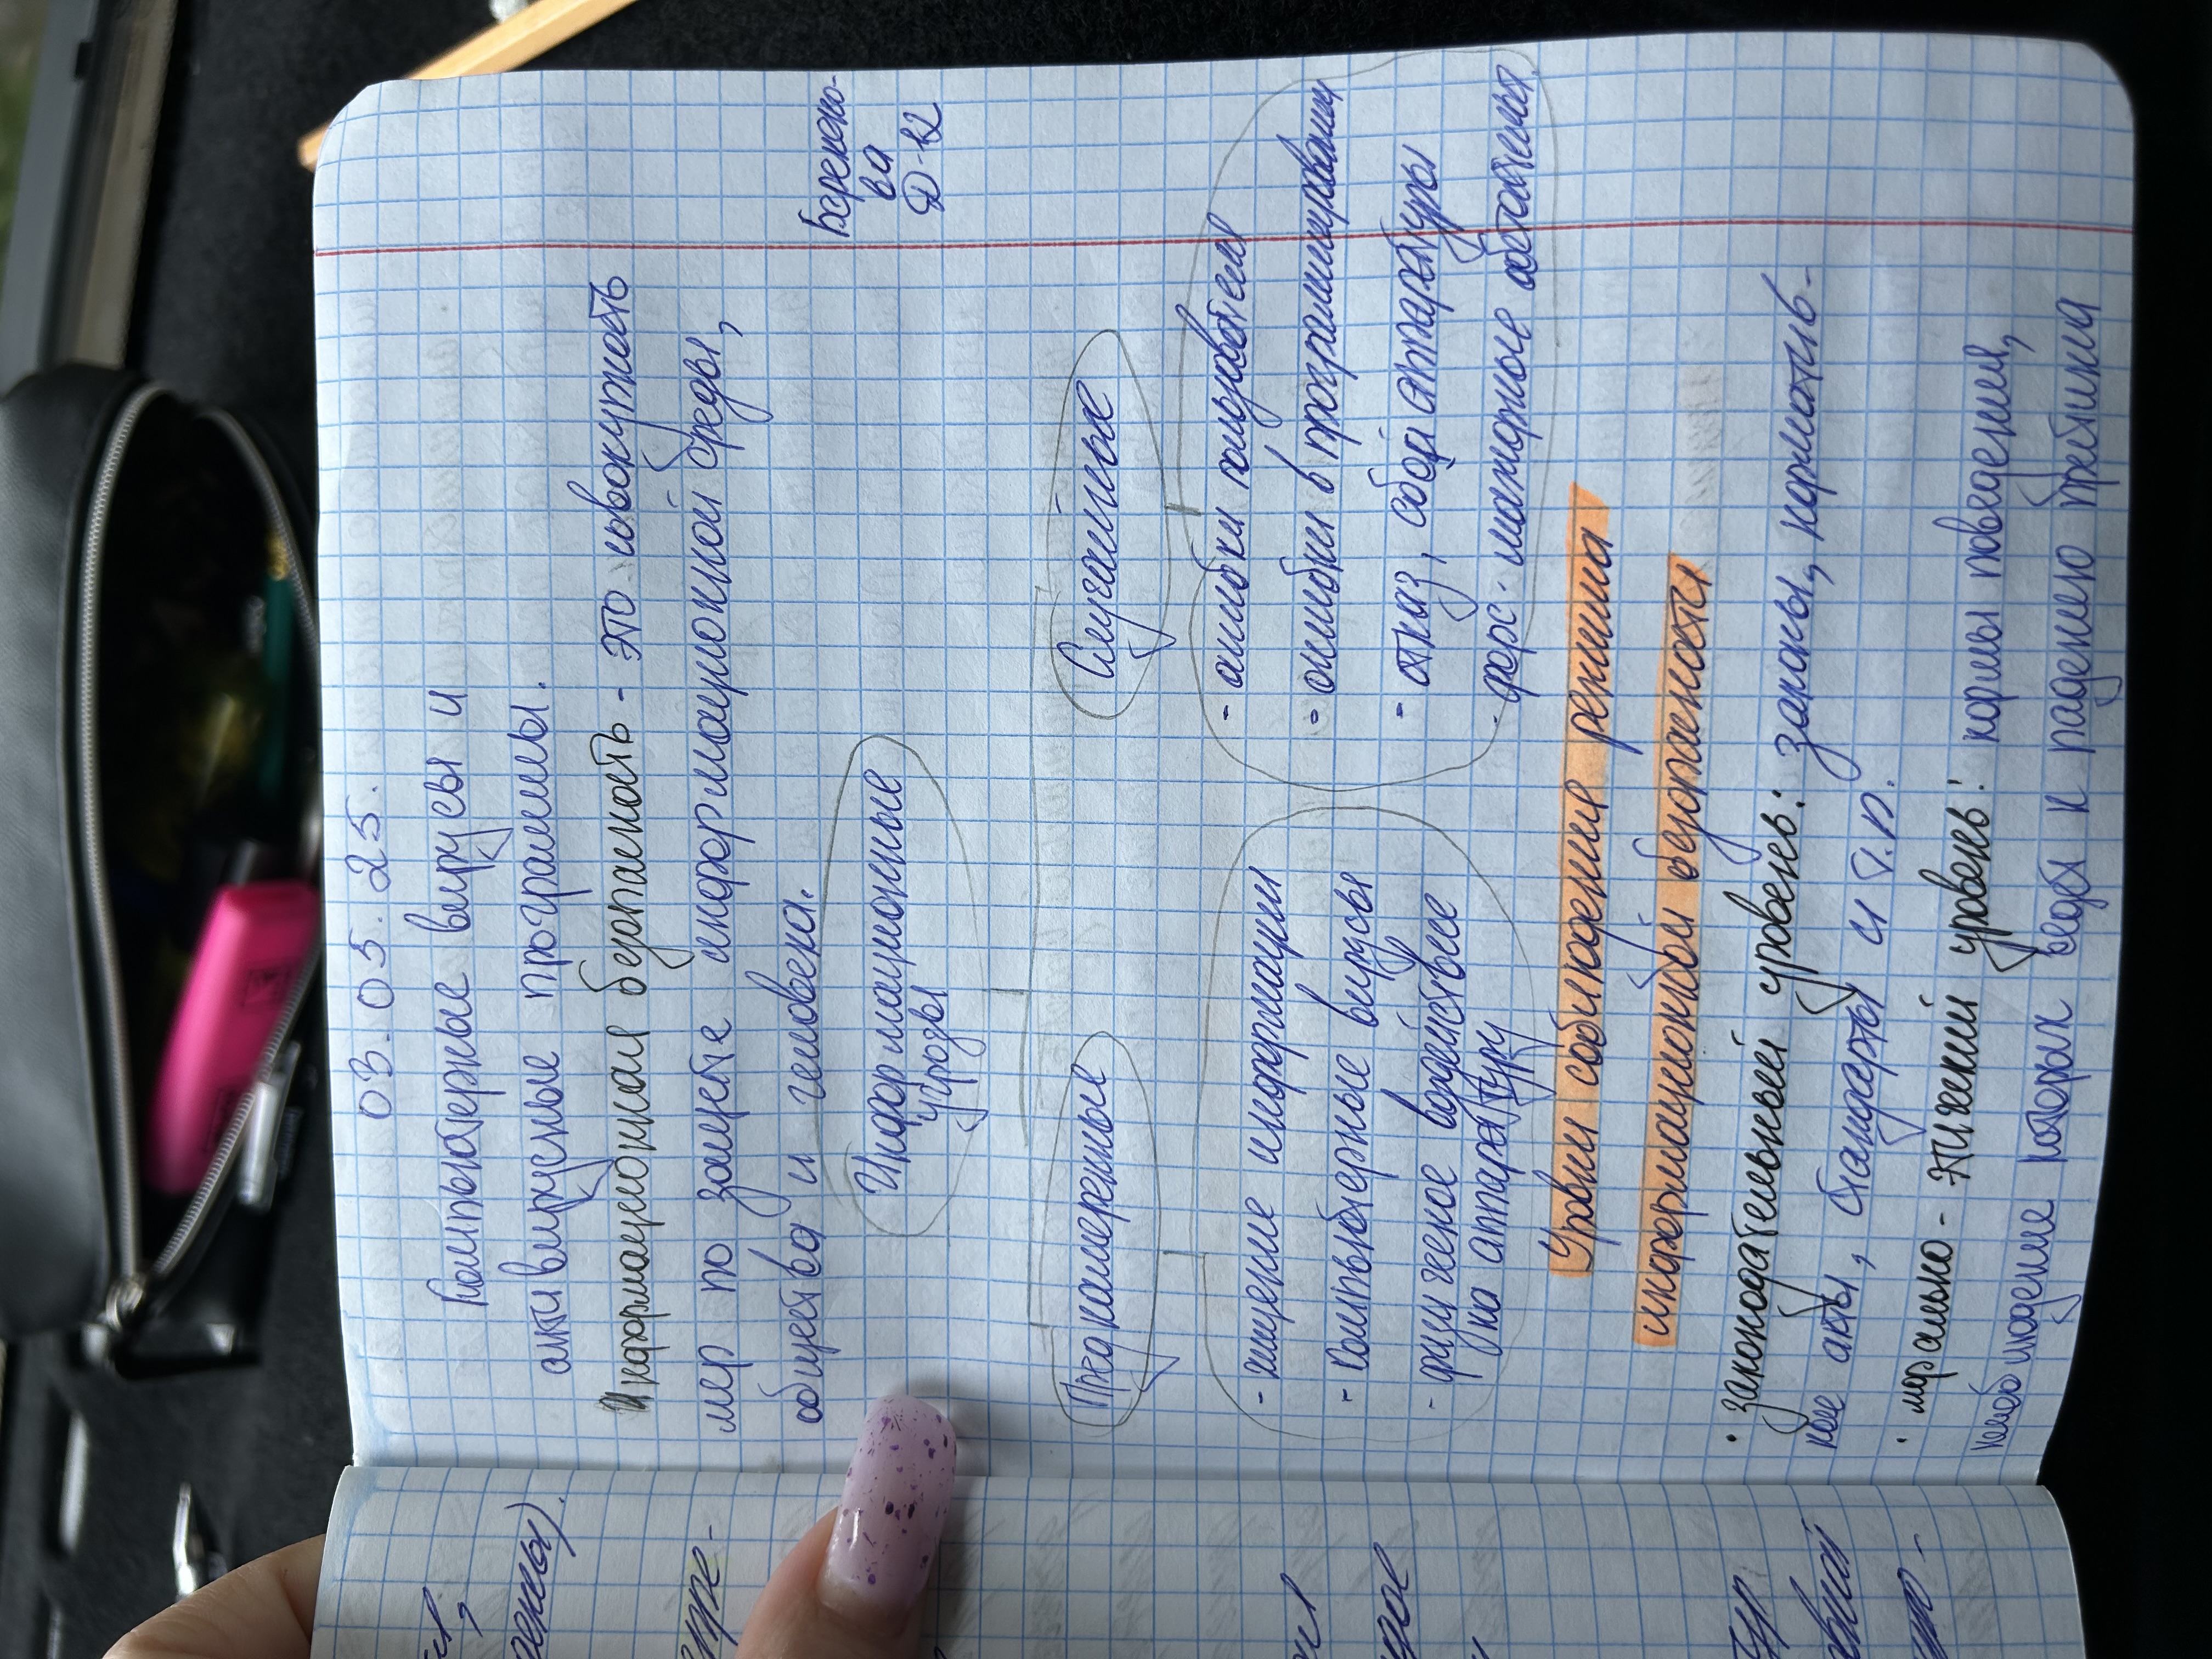 03.03.25.
Компьютерные вирусы и
антивирусные программы.
Информационная безопасность - это совокупность
мер по защите информационной среды,
общества и человека.
Информационные
угрозы
Преднамеренные
Случайные
- хищение информации
- компьютерные вирусы
- физическое воздействие
на аппаратуру
- ошибки пользователя
- ошибки в программировании
- отказ, сбой аппаратуры
- форс-мажорные обстоятельства
Уровни соблюдения режима
информационной безопасности
· законодательный уровень: законы, норматив-
ные акты, стандарты и т.п.
· морально-этический уровень: нормы поведения,
несоблюдение которых ведёт к падению престижа